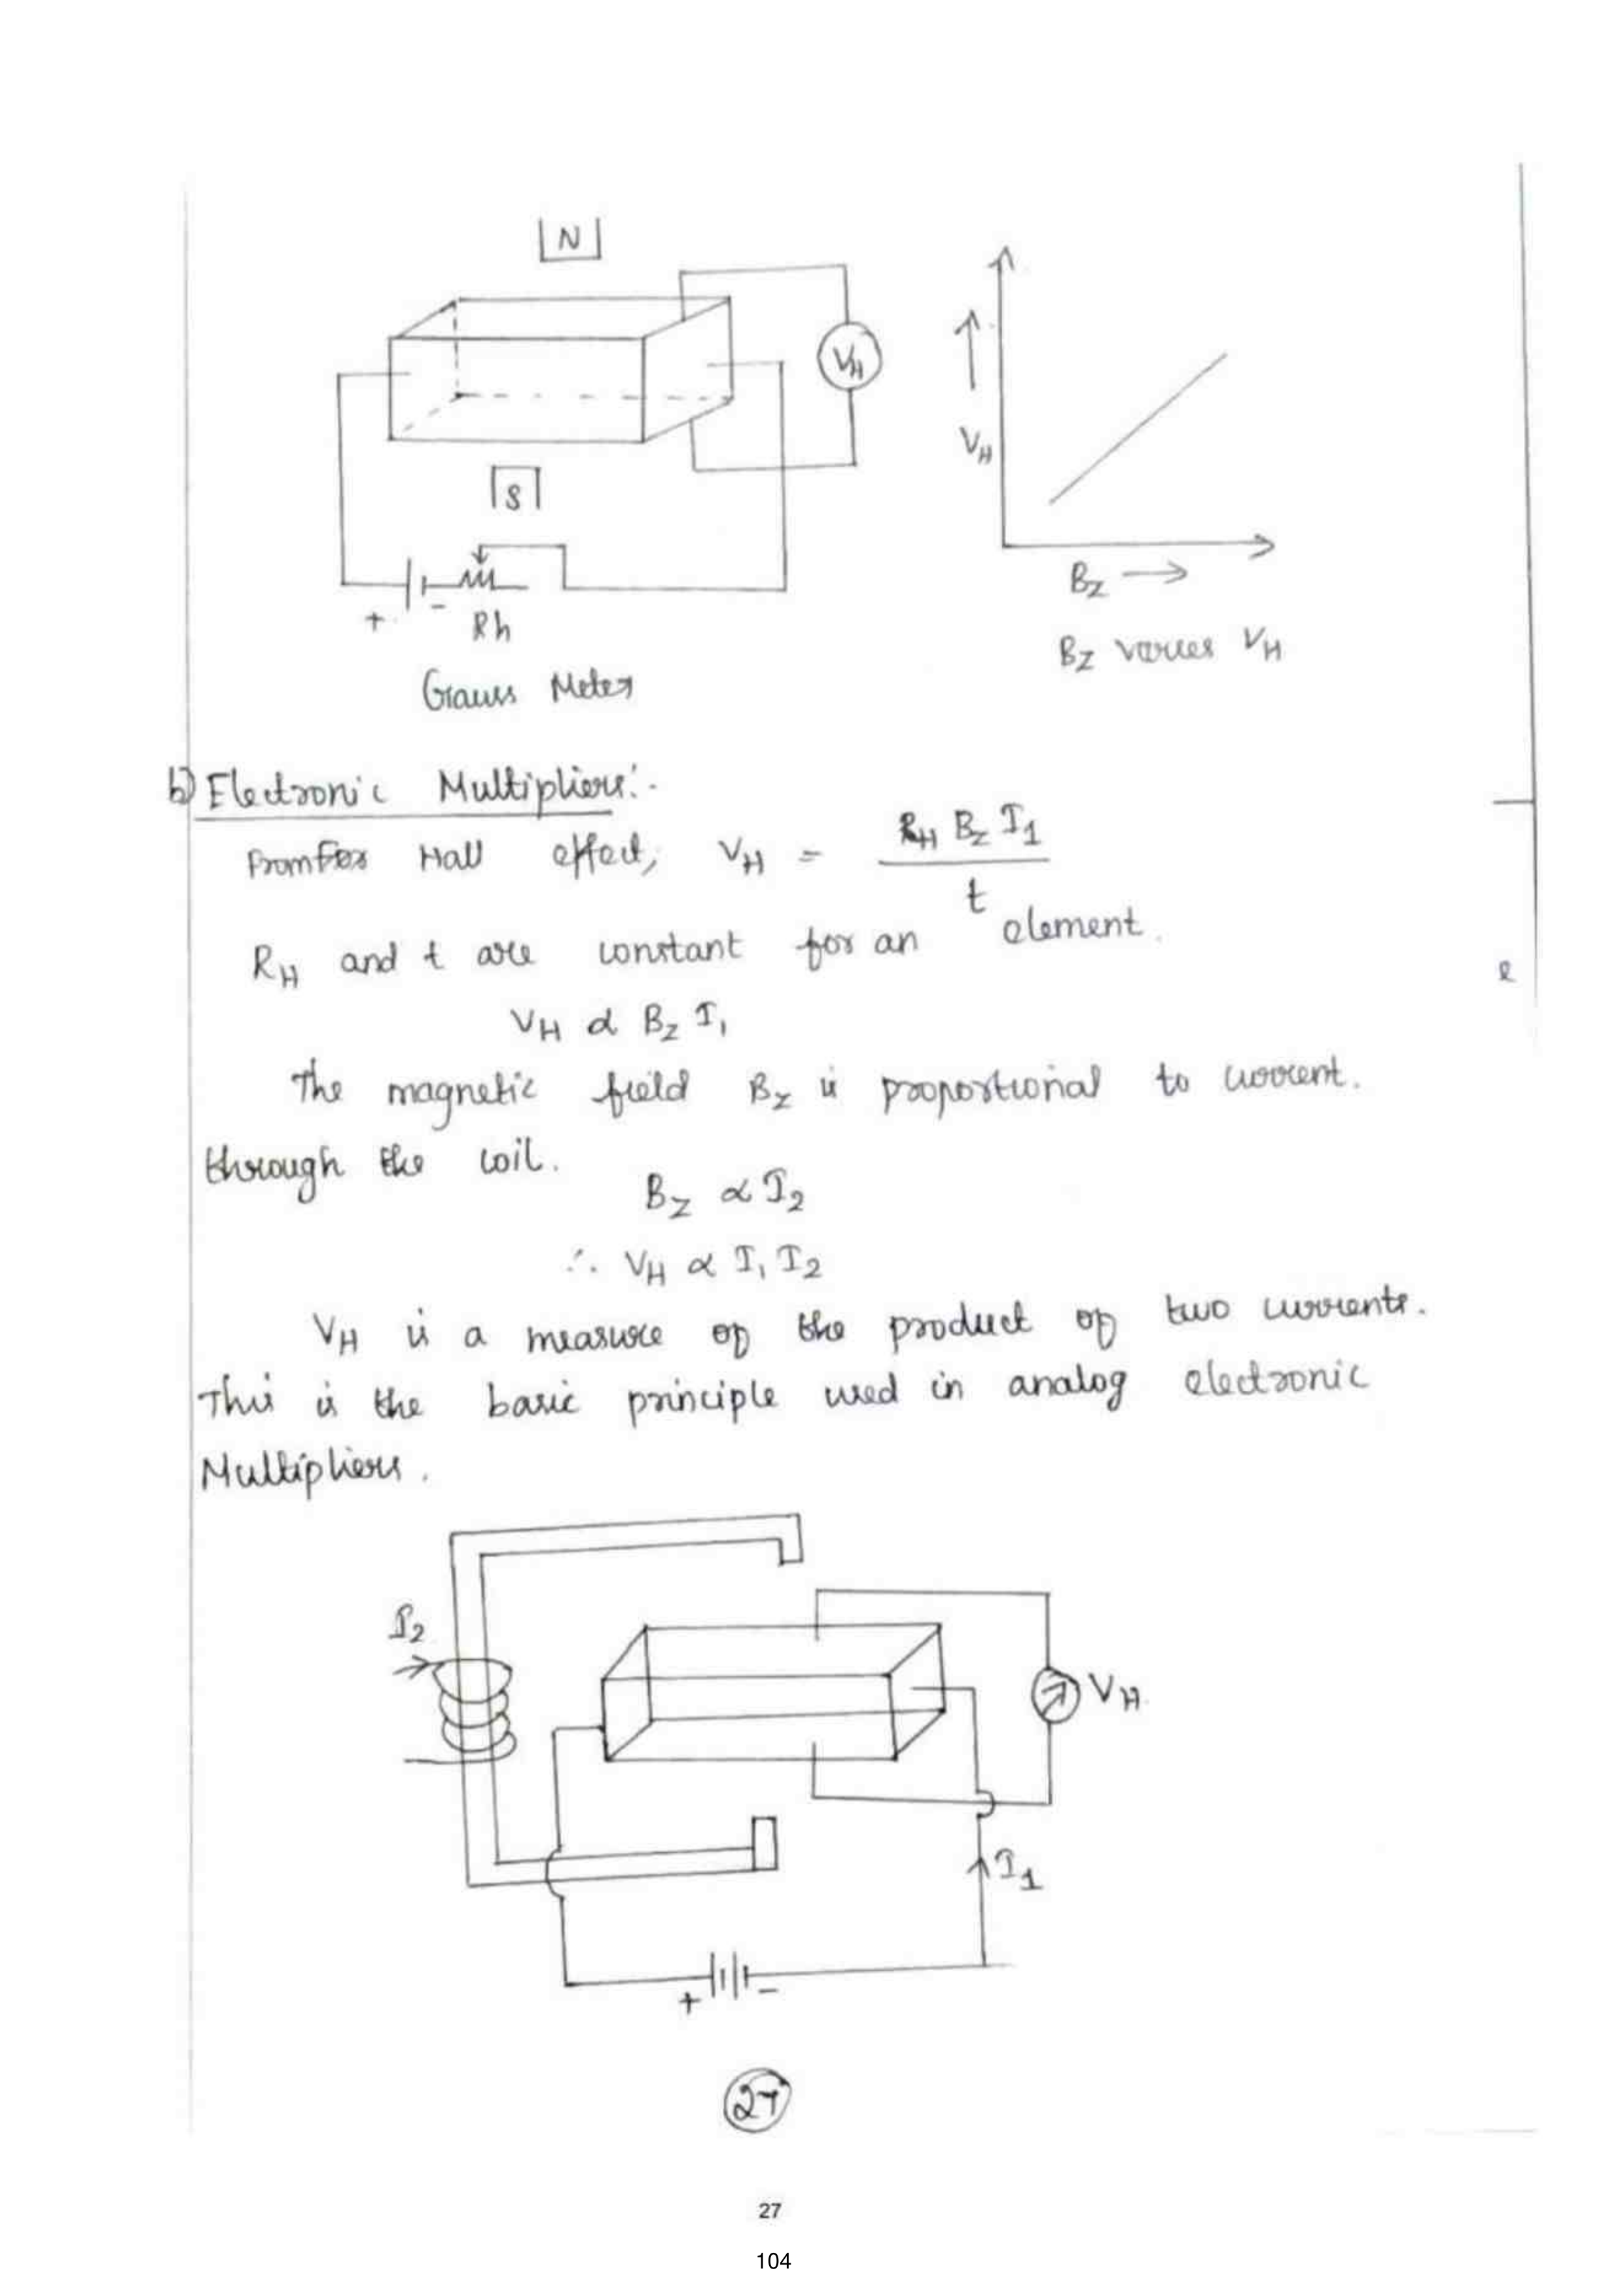 N
VH
S
+ -
Rh
Gauss Meter
VH
BZ →
BZ varies VH
b) Electronic Multipliers:-
From For Hall effect, VH = RH BZ I1 / t
RH and t are constant for an element.
VH α BZ I1
The magnetic field BZ is proportional to current.
through the coil.
BZ α I2
∴ VH α I1 I2
VH is a measure of the product of two currents.
This is the basic principle used in analog electronic
Multipliers.
I2
VH
I1
+ -
27
27
104